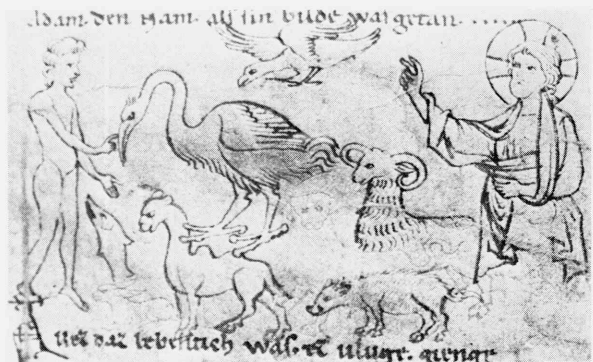 Adam den nam. als sin bilde was getan
daz lebentich was. vluge. gienge